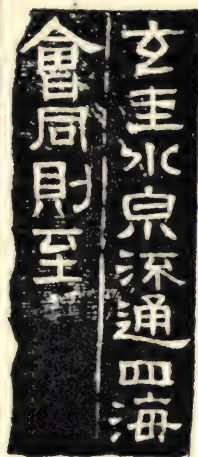 玄圭水泉流通四海
會同則至